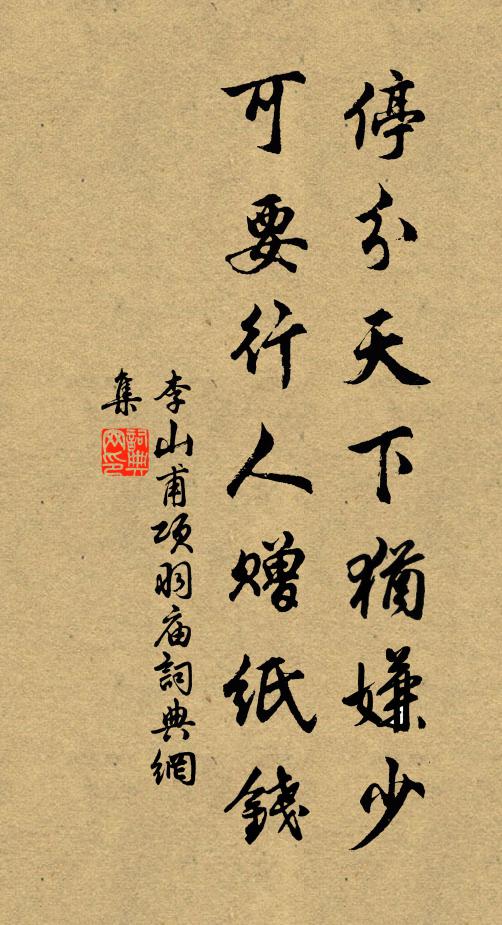 停分天下猶嫌少
可要行人赠紙錢
李山甫项羽庙詞典網
集
詞典
网印